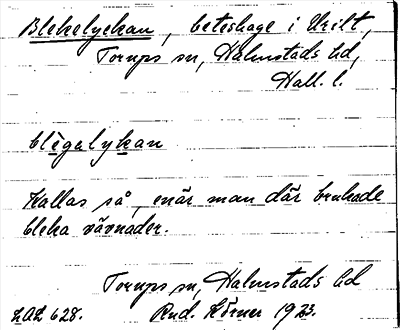 Blekelyckan, beteshage i
Torups sn, Halmstads hd,
Hall. l.
blègalykan
Kallas så, enär man där brukade
bleka vävnader.
Torups sn, Halmstads hd
LAL 628. Rud. Körner 1923.